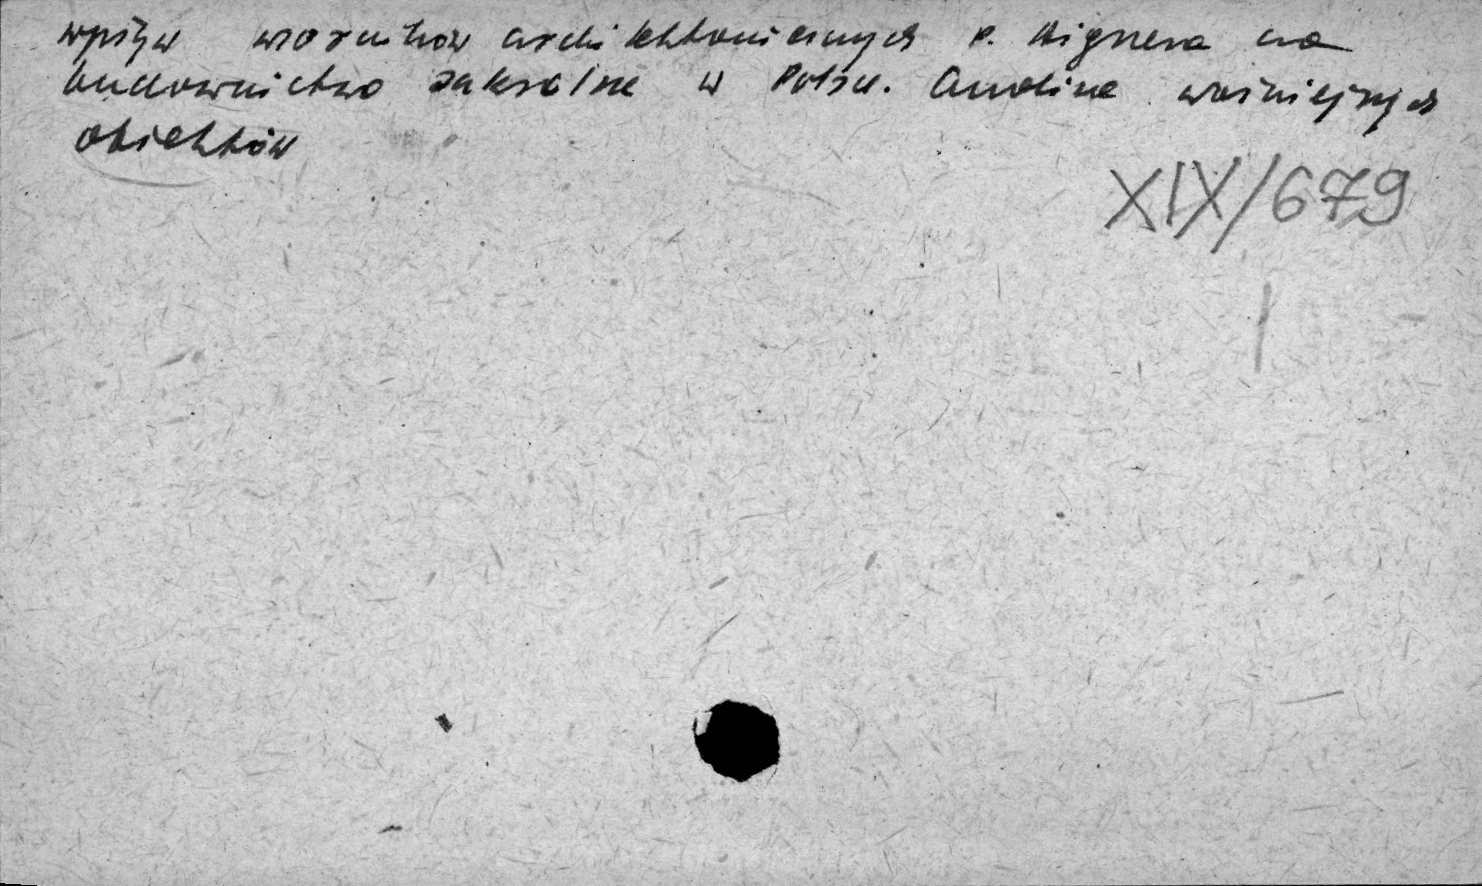 wpływ wzorników architektonicznych P. Aignera na
budownictwo sakralne w Polsce. Analiza ważniejszych
obiektów
XIX/679